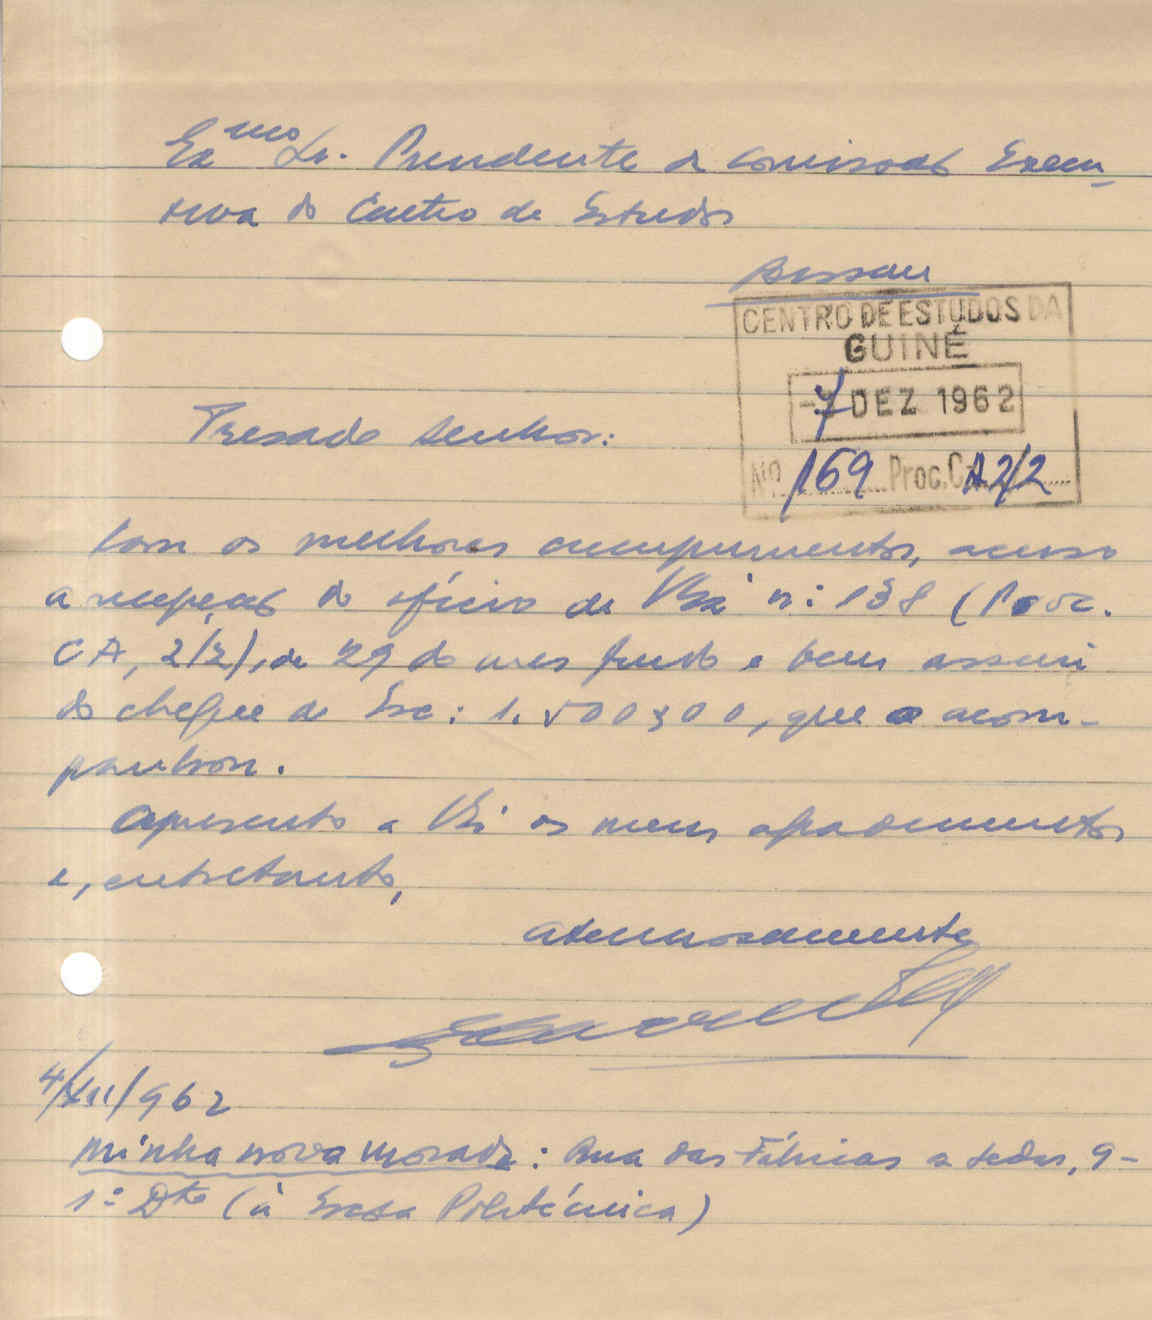 Exmo Sr. Presidente da Comissão Execu-
tiva do Centro de Estudos
Bissau
CENTRO DE ESTUDOS DA
GUINÉ
-7 DEZ 1962
Nº 169 Proc. CA 2/2
Prezado Senhor:
Com os melhores cumprimentos, acuso
a recepção do ofício de V. Exa nº: 138 (Proc.
CA, 2/2), de 29 do mês findo e bem assim
do cheque de Esc: 1.500$00, que o acom-
panhou.
Apresento a V. Exa os meus agradecimentos
e, entretanto,
atenciosamente
4/XII/962
Minha nova morada: Rua das Fábricas a Sedas, 9-
1º Dto (à Escola Politécnica)